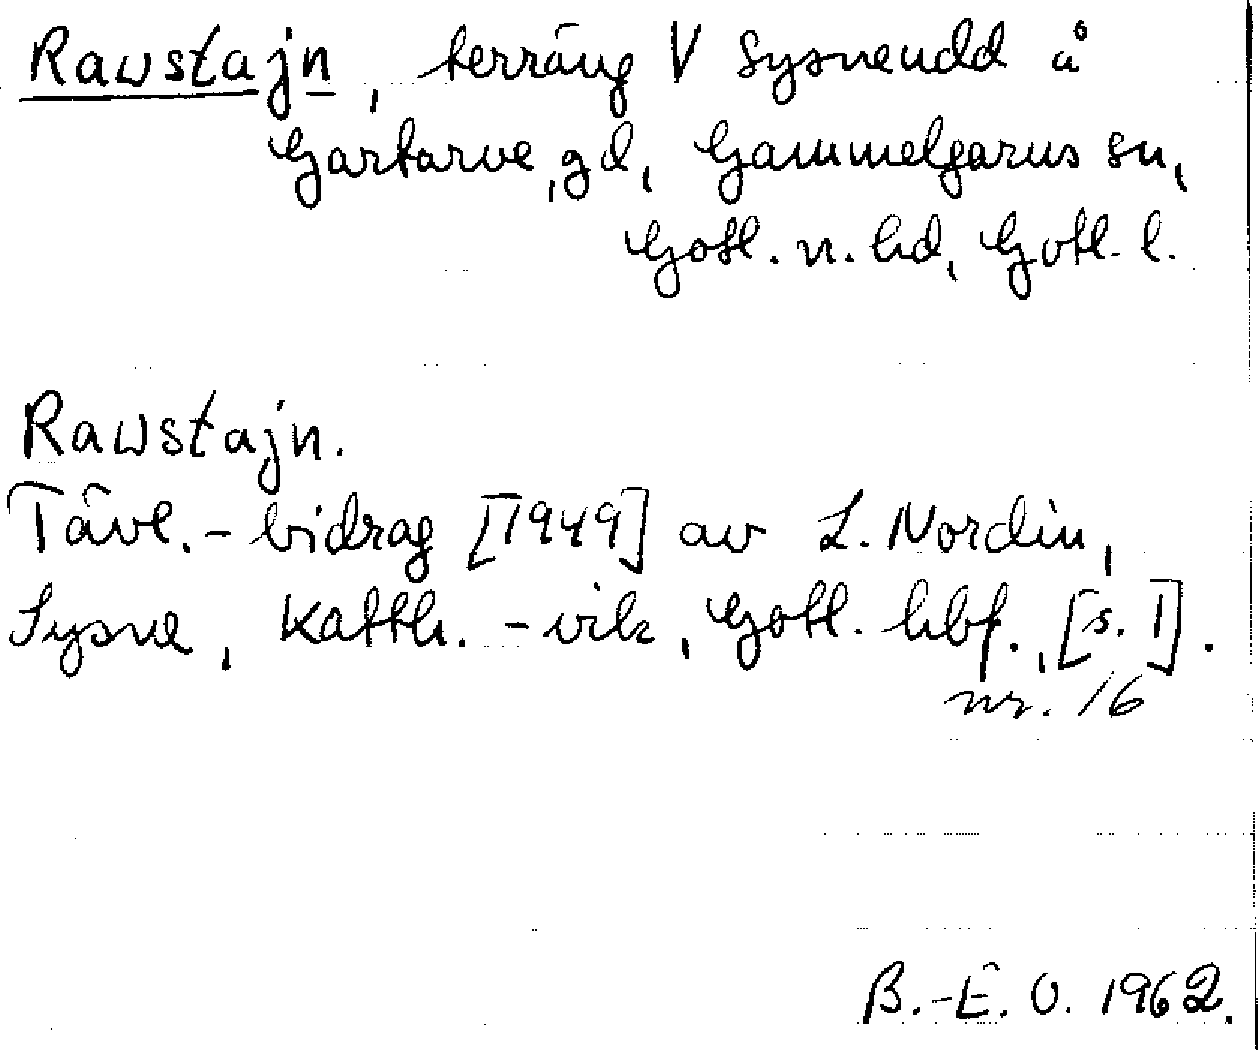 Rawstajn, terräng V Sysneudd å
Gartarve, gd, Gammelgarns sn,
Gotl. n. hd, Gotl. l.
Rawstajn.
Tävl.-bidrag [1949] av L. Nordin,
Sysne, Katth.-vik, Gotl. hbf., [s. 1].
nr. 16
B.-E. O. 1962.